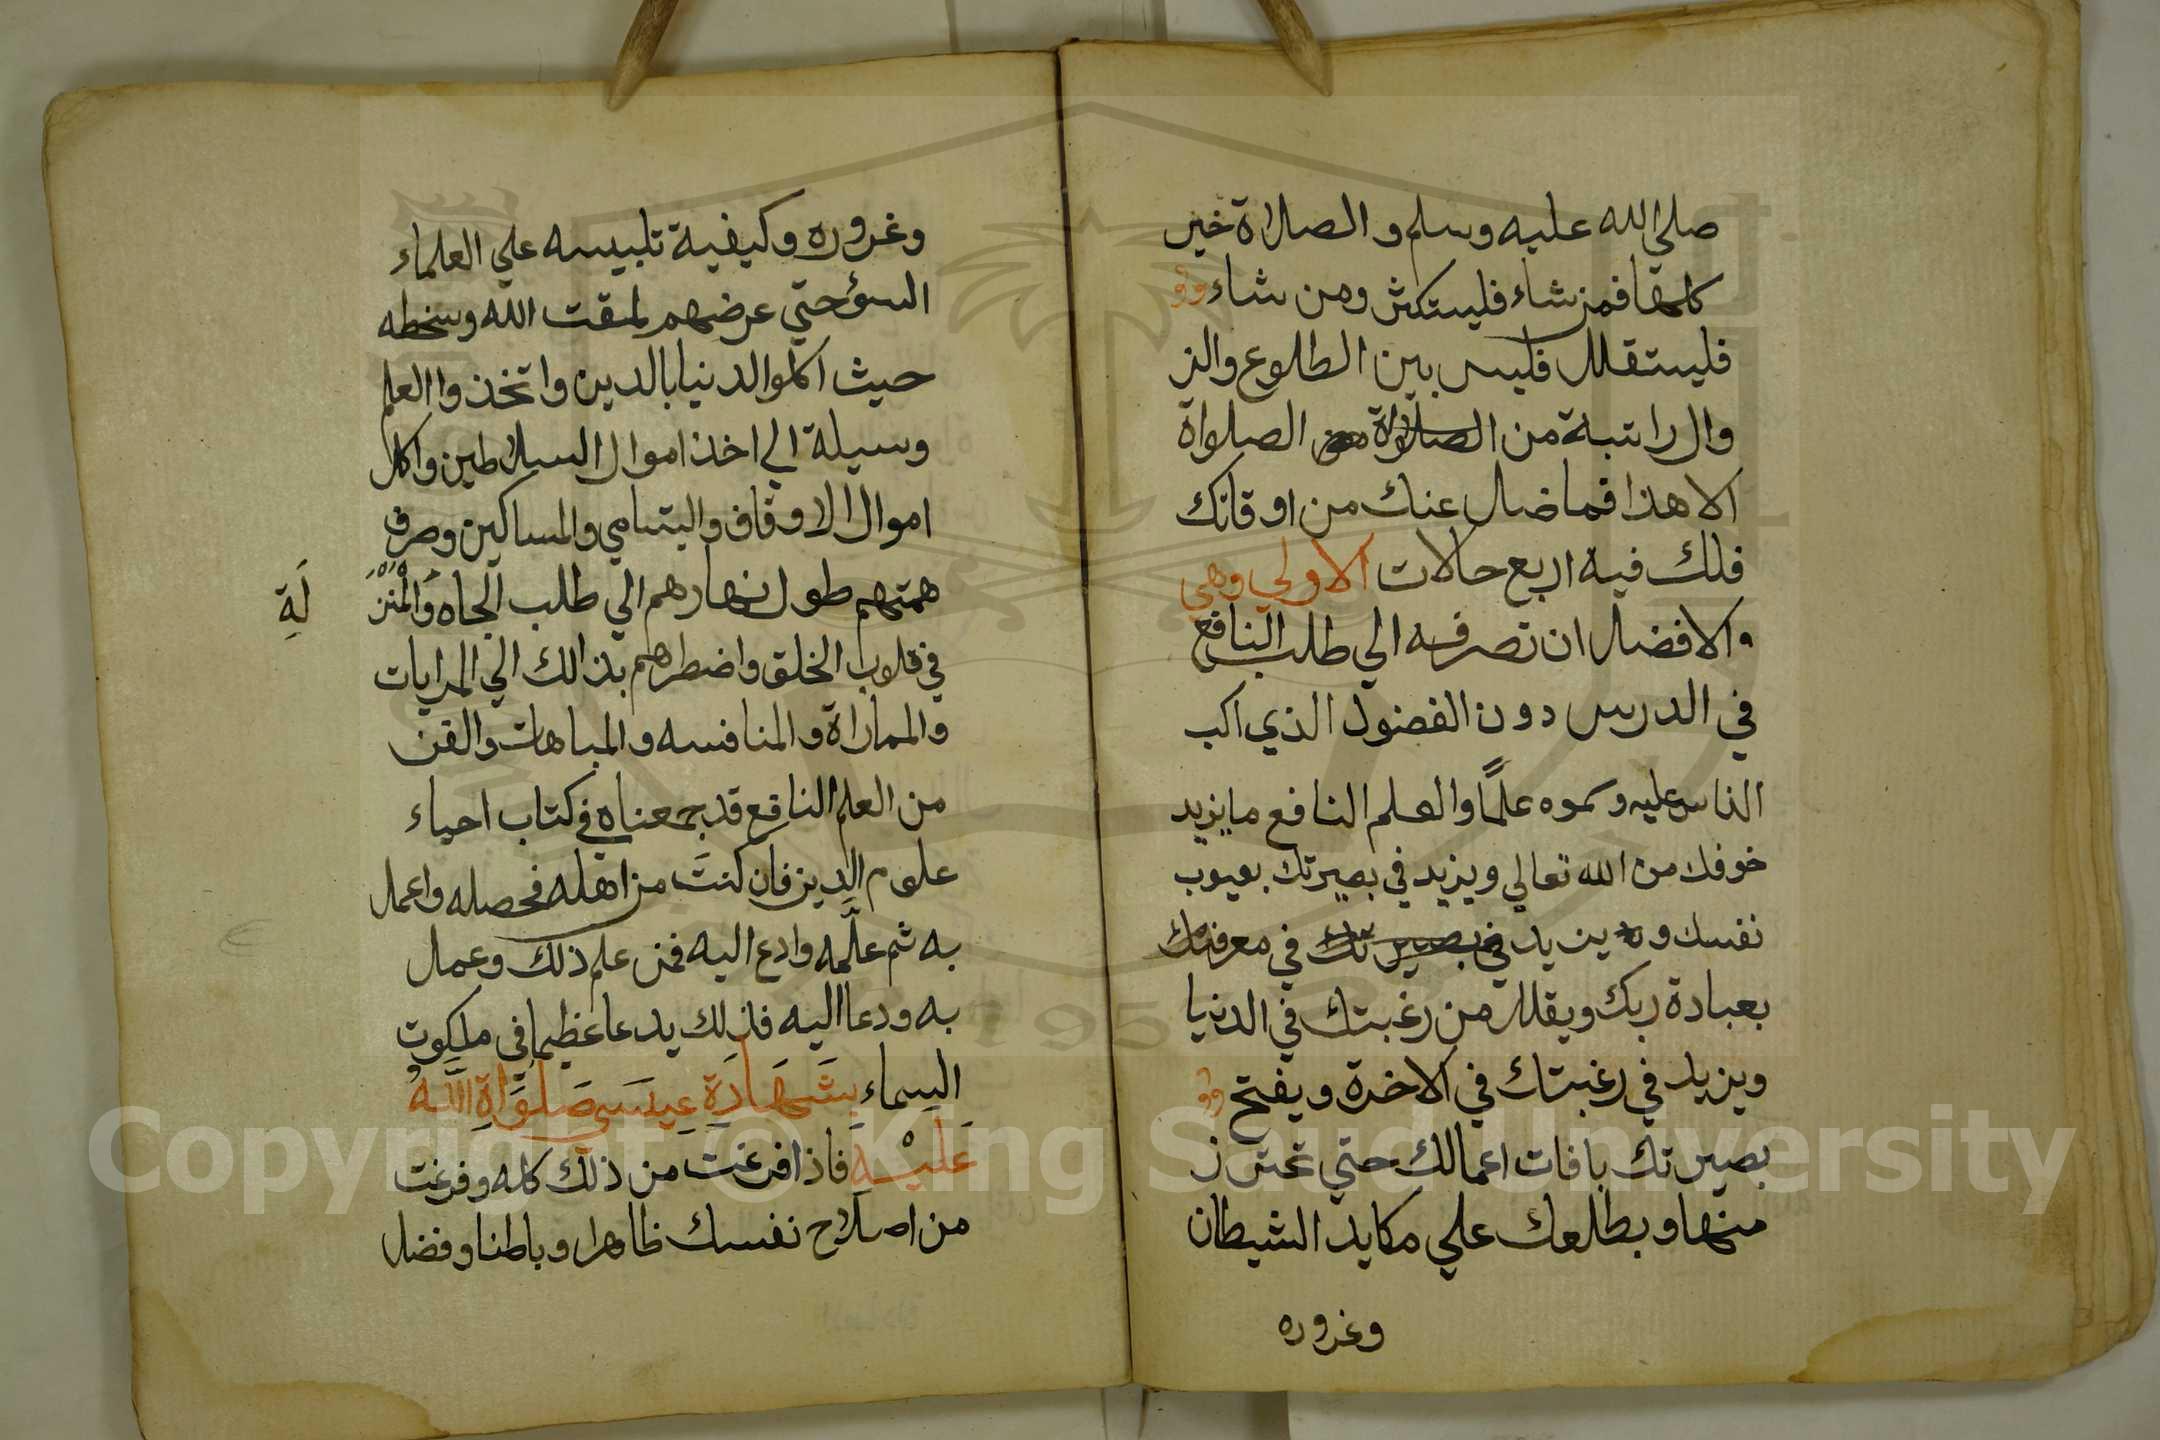 صلي الله عليه وسلم والصلاة خير
كلها فمن شاء فليستكثر ومن شاء
فليستقلل فليس بين الطلوع والز
وال راتبة من الصلواة من الصلواة
الا هذا فما ضل عنك من اوقاتك
فلك فيه اربع حالات الاولي وهي
والافضل ان تصرفه الي طلب النافع
في الدرس دون الفضول الذي اكب
الناس عليه وسموه علمًا والعلم النافع ما يزيد
خوفك من الله تعالي ويزيد في بصيرتك بعيوب
نفسك و يزيد في بصيرتك في معرفتك
بعبادة ربك ويقلل من رغبتك في الدنيا
ويزيد في رغبتك في الاخرة ويفتح
بصيرتك بافات اعمالك حتي تحترز
منها ويطلعك علي مكايد الشيطان
وغروره
وغروره وكيفية تلبيسه علي العلماء
السوٴ حتي عرضهم لمقت الله وسخطه
حيث اكلوا الدنيا بالدين واتخذوا العلم
وسيلة الي اخذ اموال السلاطين واكل
اموال الاوقاف واليتامي والمساكين وصرف
همتهم طول نهارهم الي طلب الجاه وَالْمَنْزِ
لَةِ
في قلوب الخلق واضطرهم بذالك الي المرايات
والمماراة والمنافسه والمباهات والفن
من العلم النافع قد جمعناه في كتاب احياء
علوم الدين فان كنت من اهله فحصله واعمل
به ثم علّمه وادع اليه فمن علم ذلك وعمل
به ودعا اليه فذلك يدعا عظيما في ملكوت
السماء بِشَهَادَةِ عِيسَي صَلَوَاةِ اللَّهُ
عَلَيْهِ فاذا فرغت من ذلك كله وفرغت
من اصلاح نفسك ظاهرا وباطنا وفضل
Copyright © King Saud University